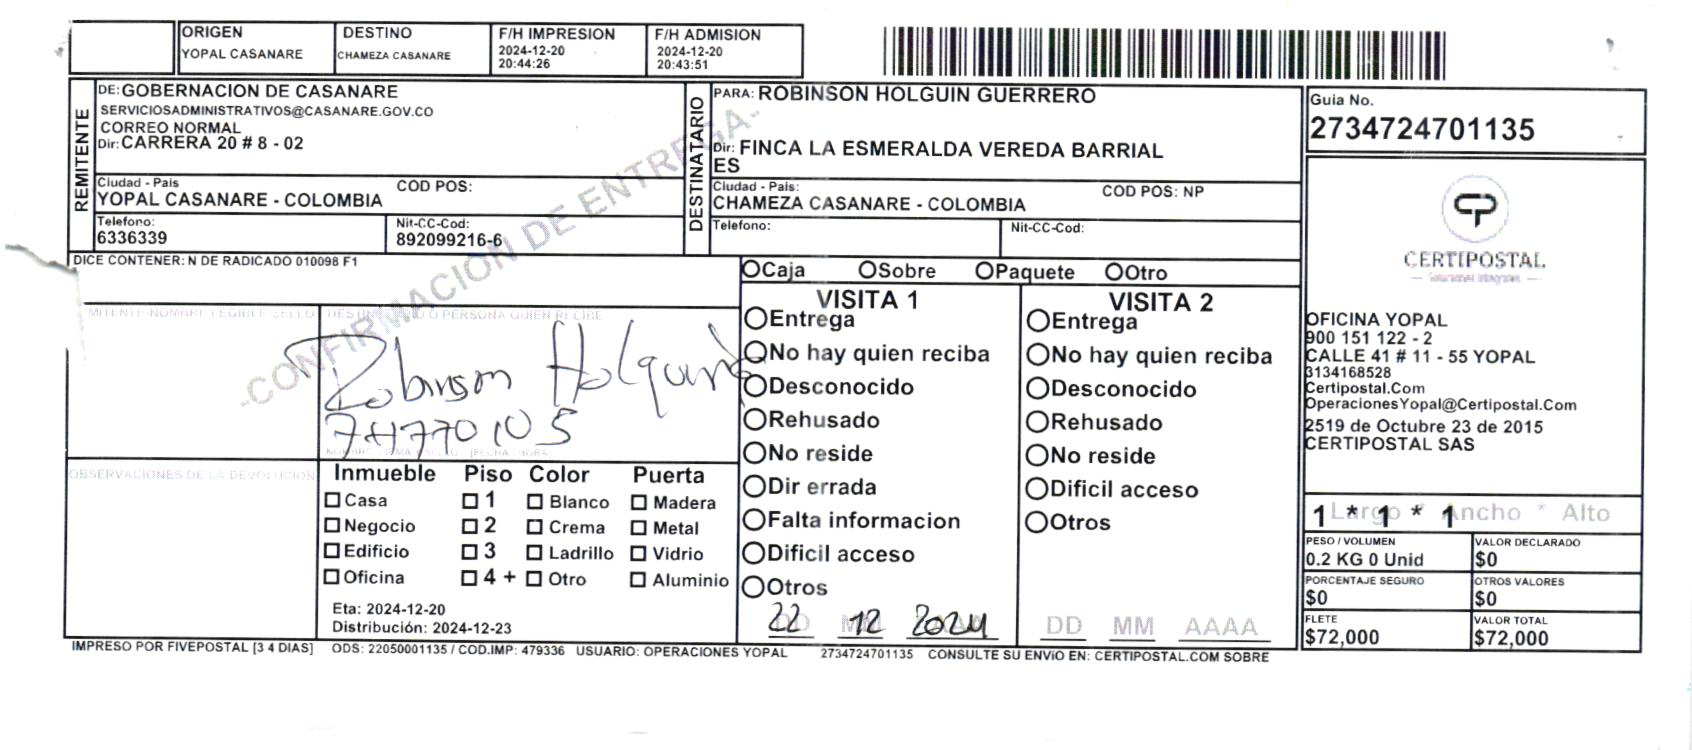 ORIGEN
YOPAL CASANARE
DESTINO
CHAMEZA CASANARE
F/H IMPRESION
2024-12-20
20:44:26
F/H ADMISION
2024-12-20
20:43:51
REMITENTE
DE: GOBERNACION DE CASANARE
SERVICIOSADMINISTRATIVOS@CASANARE.GOV.CO
CORREO NORMAL
Dir: CARRERA 20 # 8 - 02
Ciudad - Pais
COD POS:
YOPAL CASANARE - COLOMBIA
Telefono:
6336339
Nit-CC-Cod:
892099216-6
DESTINATARIO
PARA: ROBINSON HOLGUIN GUERRERO
Dir: FINCA LA ESMERALDA VEREDA BARRIAL
ES
Ciudad - Pais:
COD POS: NP
CHAMEZA CASANARE - COLOMBIA
Telefono:
Nit-CC-Cod:
Guia No.
2734724701135
CERTIPOSTAL
OFICINA YOPAL
900 151 122 - 2
CALLE 41 # 11 - 55 YOPAL
3134168528
Certipostal.Com
OperacionesYopal@Certipostal.Com
2519 de Octubre 23 de 2015
CERTIPOSTAL SAS
Largo * Ancho * Alto
1 * 1 * 1
PESO / VOLUMEN
0.2 KG 0 Unid
VALOR DECLARADO
$0
PORCENTAJE SEGURO
$0
OTROS VALORES
$0
FLETE
$72,000
VALOR TOTAL
$72,000
-CONFIRMACION DE ENTREGA-
DICE CONTENER: N DE RADICADO 010098 F1
MITENTE-NOMBRE LEGIBLE SELLO
DESTINATARIO O PERSONA QUIEN RECIBE
Robinson Holguin
OBSERVACIONES DE LA DEVOLUCION
Inmueble Piso Color Puerta
Casa 1 Blanco Madera
Negocio 2 Crema Metal
Edificio 3 Ladrillo Vidrio
Oficina 4 + Otro Aluminio
Eta: 2024-12-20
Distribución: 2024-12-23
Caja Sobre Paquete Otro
VISITA 1
Entrega
No hay quien reciba
Desconocido
Rehusado
No reside
Dir errada
Falta informacion
Dificil acceso
Otros
22 12 2024
VISITA 2
Entrega
No hay quien reciba
Desconocido
Rehusado
No reside
Dificil acceso
Otros
DD MM AAAA
IMPRESO POR FIVEPOSTAL [3 4 DIAS] ODS: 22050001135 / COD.IMP: 479336 USUARIO: OPERACIONES YOPAL 2734724701135 CONSULTE SU ENVíO EN: CERTIPOSTAL.COM SOBRE